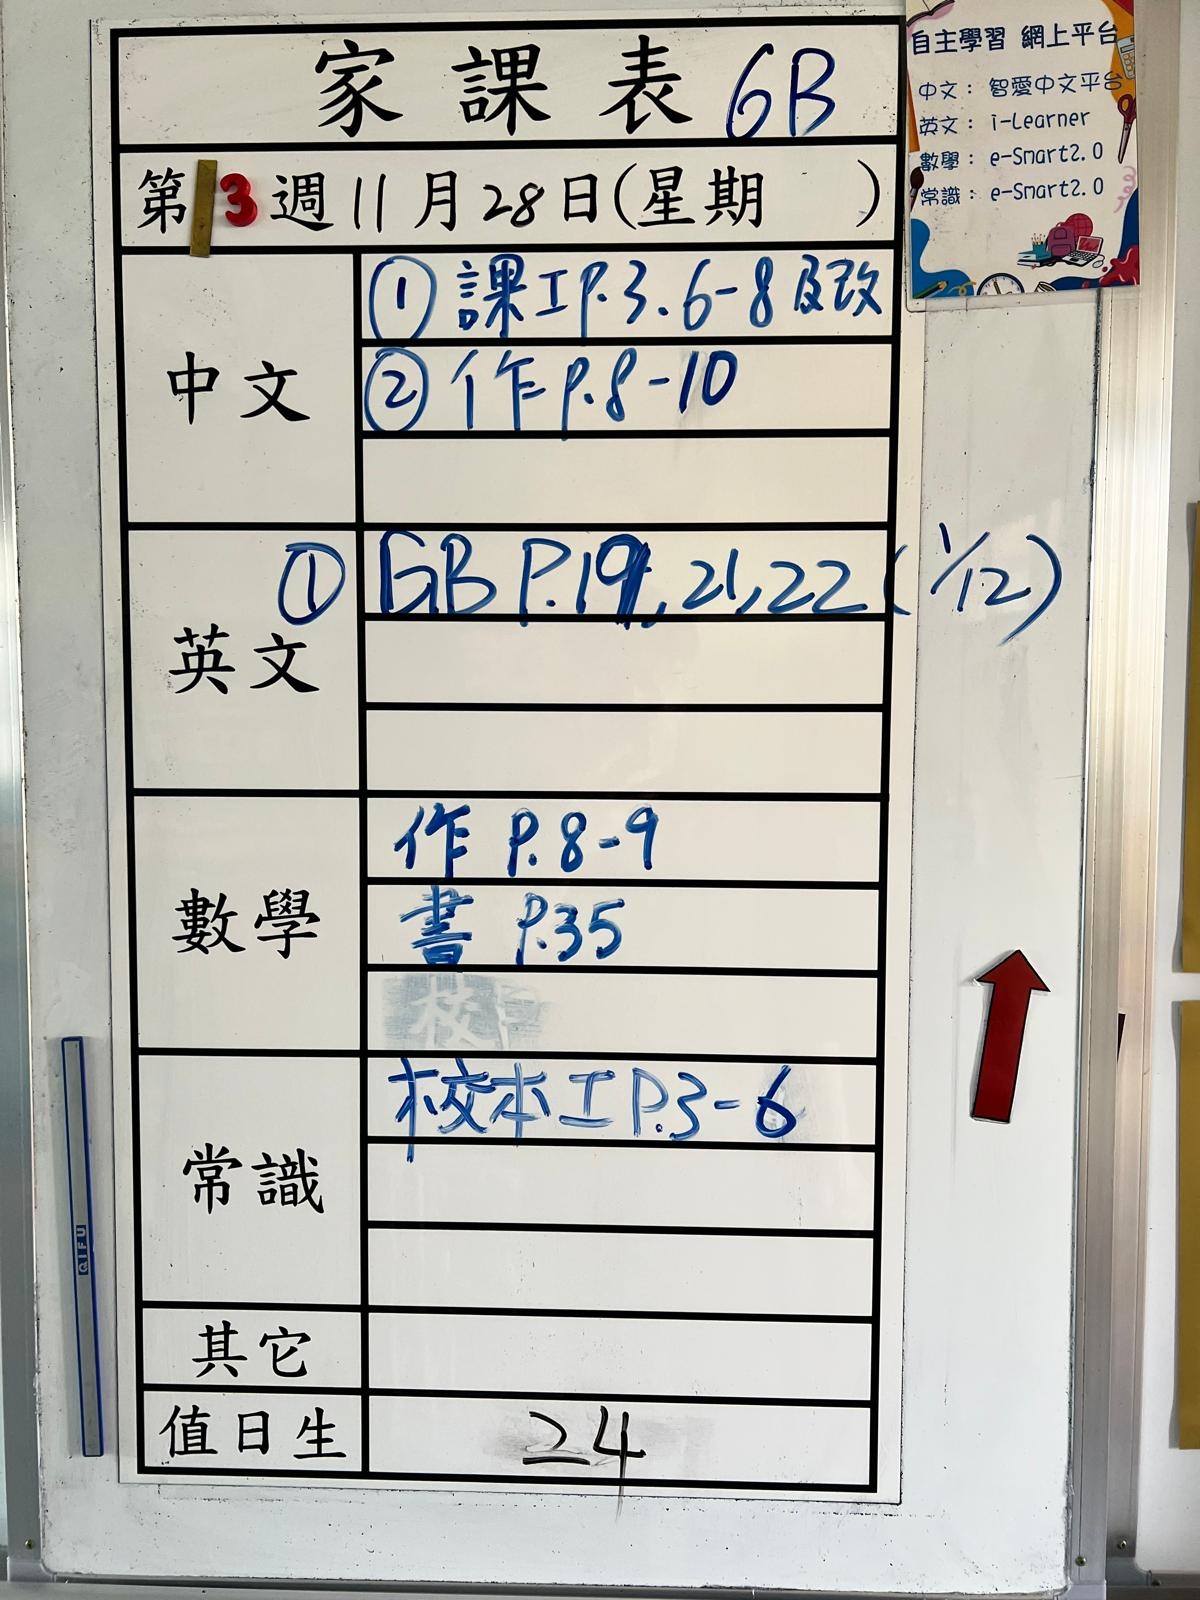 家課表 6B
第13週11月28日(星期 )
中文
① 課工P.3.6-8及改
② 作 P.8-10
英文
① GB P.19, 21, 22 (1/12)
數學
作 P.8-9
書 P.35
校
常識
校本工P.3-6
其它
值日生
24
自主學習 網上平台
中文: 智愛中文平台
英文: i-Learner
數學: e-Smart2.0
常識: e-Smart2.0
QIFU